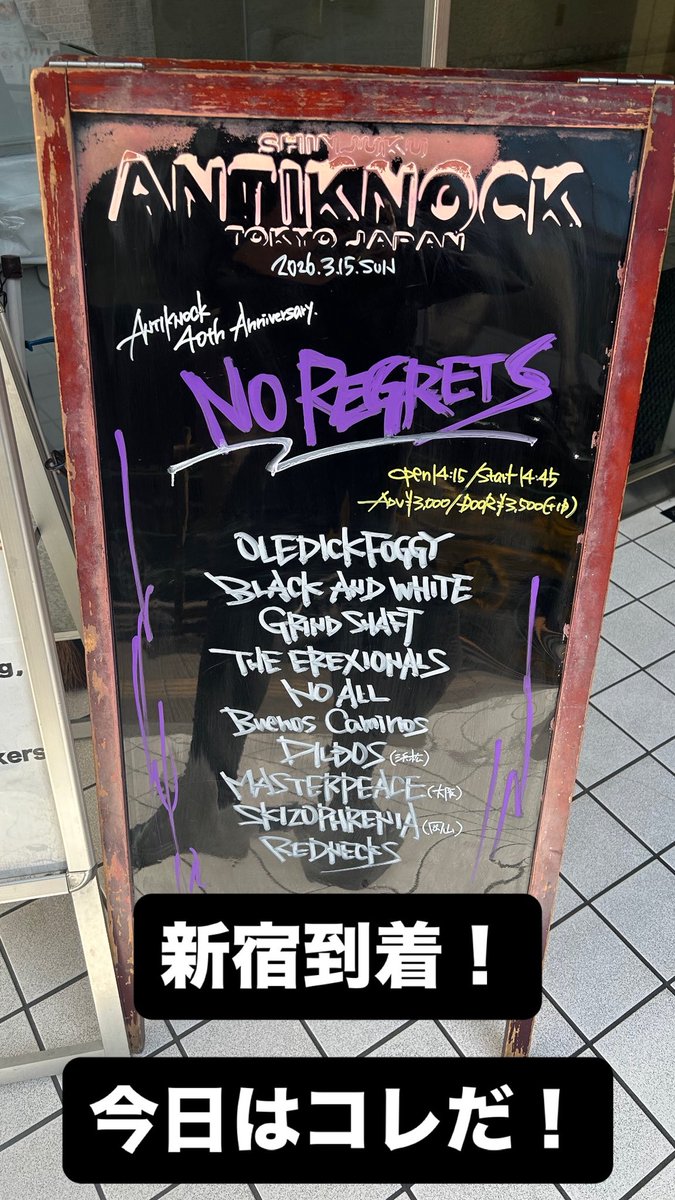 SHINJUKU
ANTIKNOCK
TOKYO JAPAN
2026.3.15.SUN
ANTIKNOCK
40th Anniversary.
NO REGRETS
open14:15/Start14:45
ADV¥3,000/DOOR¥3,500(+1D)
OLEDICKFOGGY
BLACK AND WHITE
GRIND SHAFT
THE EREXIONALS
NO ALL
Buenos Caminos
DILDOS(浜松)
MASTERPEACE(大阪)
SKIZOPHRENIA(岡山)
REDNECKS
新宿到着！
今日はコレだ！